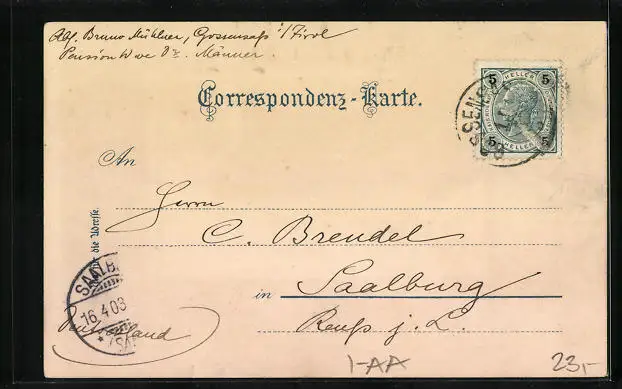 Abs. Bruno Mühlner, Gossensaß i/Tirol
Pension Wwe Dr. Männer.
Correspondenz-Karte.
5 HELLER 5
5 HELLER 5
GOSSENSASS
An
Herrn
C. Brendel
Nur für die Adresse.
in Saalburg
SAALB
16.4.03
* (SA
Deutschland
Reuß j. L.
1-AA
23,-